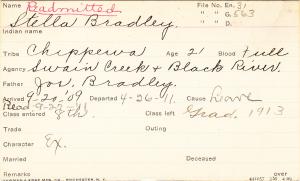 Name Readmitted File No. En. 31
Stella Bradley. " " G. 563
Indian name " " D.
Tribe Chippewa Age 21 Blood Full
Agency Swan Creek & Black River.
Father Jos. Bradley.
Arrived 9-20-'09 Departed 4-26-11. Cause Leave
Read-9-22-11
Class entered 8th. Class left Grad. 1913
Trade Outing
Character Ex.
Married Deceased
Remarks over